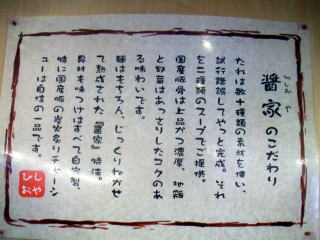 醤家のこだわり
ひしお や
たれは数十種類の素材を使い、
試行錯誤してやっと完成。それ
を二種類のスープでご提供。
国産豚骨は上品かつ濃厚、地鶏
と野菜はあっさりしたコクのあ
る味わいです。
麺はもちろん、じっくりねかせ
て熟成された『醤家』特注。
具材も味つけはすべて自家製、
特に国産豚の炭火炙りチャーシ
ューは自信の一品です。
ひしお
や